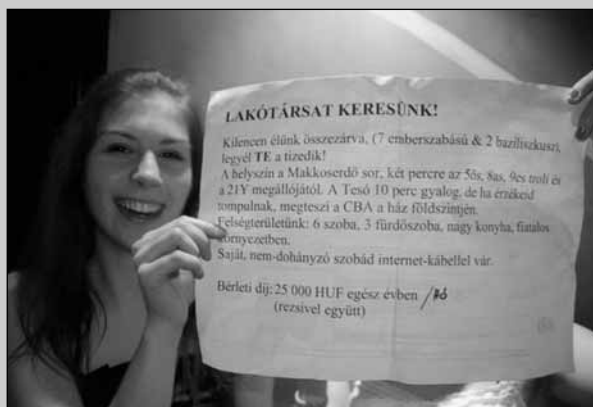 LAKÓTÁRSAT KERESÜNK!
Kilencen élünk összezárva, (7 emberszabású & 2 baziliszkusz),
legyél TE a tizedik!
A helyszín a Makkoserdő sor, két percre az 5ös, 8as, 9es troli és
a 21Y megállójától. A Tesó 10 perc gyalog, de ha érzékeid
tompulnak, megteszi a CBA a ház földszintjén.
Felségterületünk: 6 szoba, 3 fürdőszoba, nagy konyha, fiatalos
környezetben.
Saját, nem-dohányzó szobád internet-kábellel vár.
Bérleti díj: 25 000 HUF egész évben /hó
(rezsivel együtt)